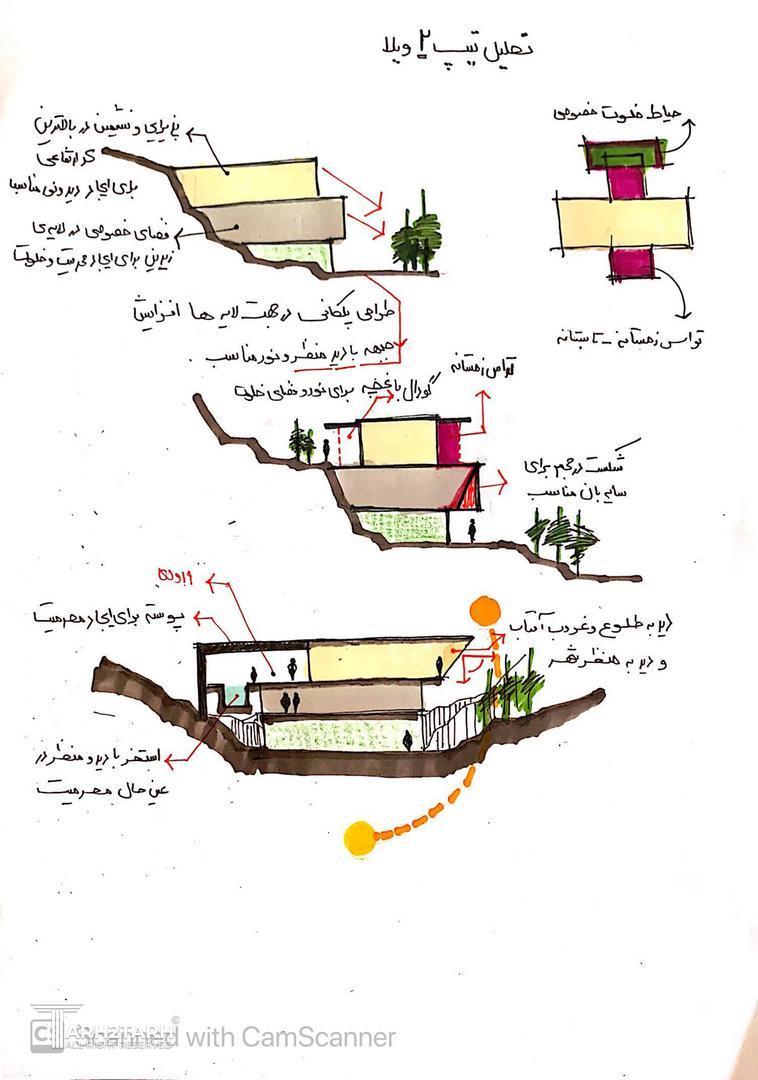 تحلیل تیپ ۲ ویلا
حیاط خلوت خصوصی
پذیرایی و نشیمن در بالاترین
کد ارتفاعی
برای ایجاد دید ونی مناسب
فضای خصوصی در لایه‌ی
زیرین برای ایجاد محرمیت و خلوت
تراس زمستانه - تابستانه
طراحی پلکانی در جهت لایه ها افزایش
جبهه با دید منظر و نور مناسب .
تراس زمستانه
گودال باغچه برای نور و فضای خلوت
شکست در حجم برای
سایه بان مناسب
پوسته برای ایجاد محرمیت
دید به طلوع و غروب آفتاب
و دید به منظر شهر
استخر با دید و منظر در
عین حال محرمیت
TARH2TARH©
ALL RIGHTS RESERVED
CS Scanned with CamScanner